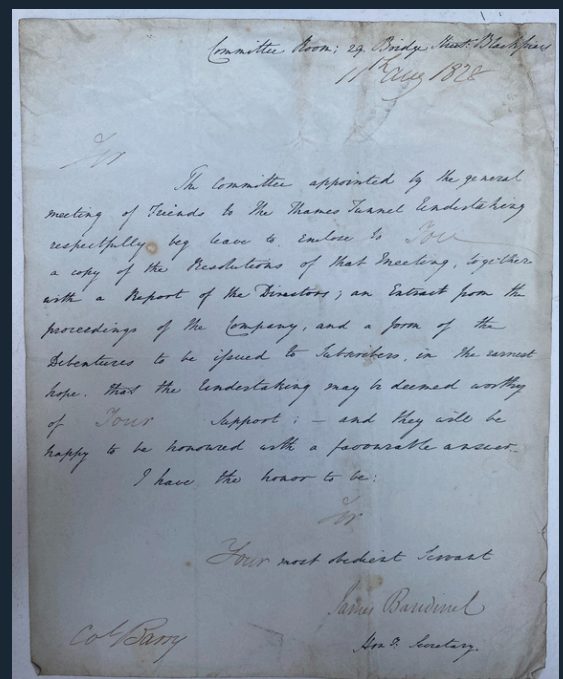 Committee Room; 29 Bridge Street Blackfriars
11th Aug 1828
Sir
The Committee appointed by the general
meeting of Friends to the Thames Tunnel Undertaking
respectfully beg leave to enclose to You
a copy of the Resolutions of that Meeting, together
with a Report of the Directors; an Extract from the
proceedings of the Company, and a form of the
Debentures to be issued to Subscribers, in the earnest
hope, that the Undertaking may be deemed worthy
of Your Support; – and they will be
happy to be honoured with a favourable answer.
I have, the honor to be;
Sir
Your most obedient Servant
James Bandinel
Hony. Secretary.
Col Barry